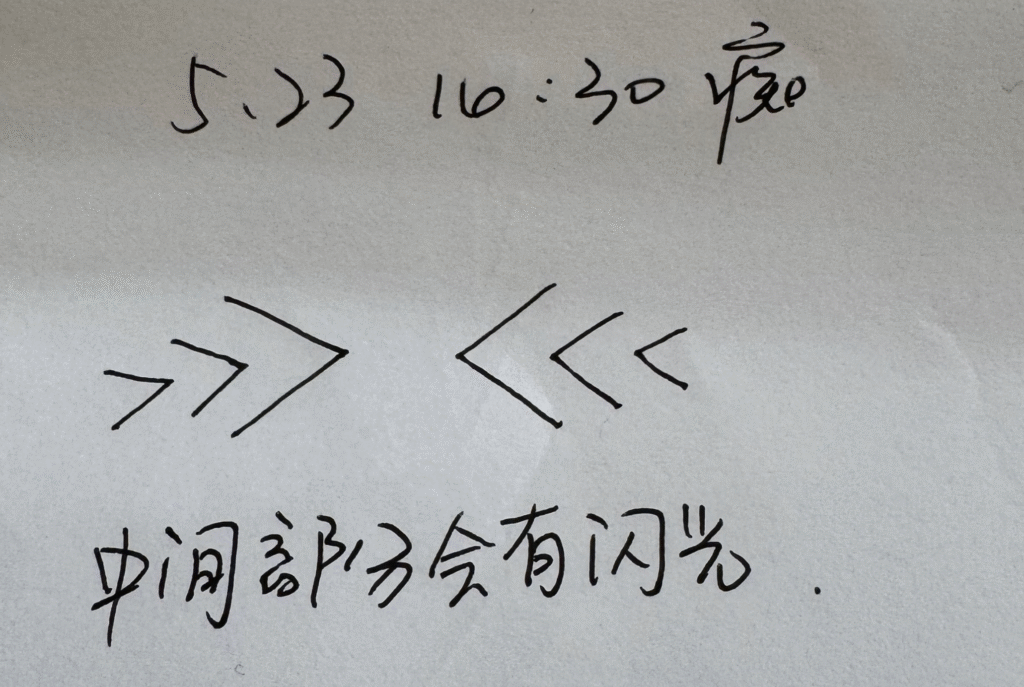 5.23 16:30 痴
中间部分会有闪光.